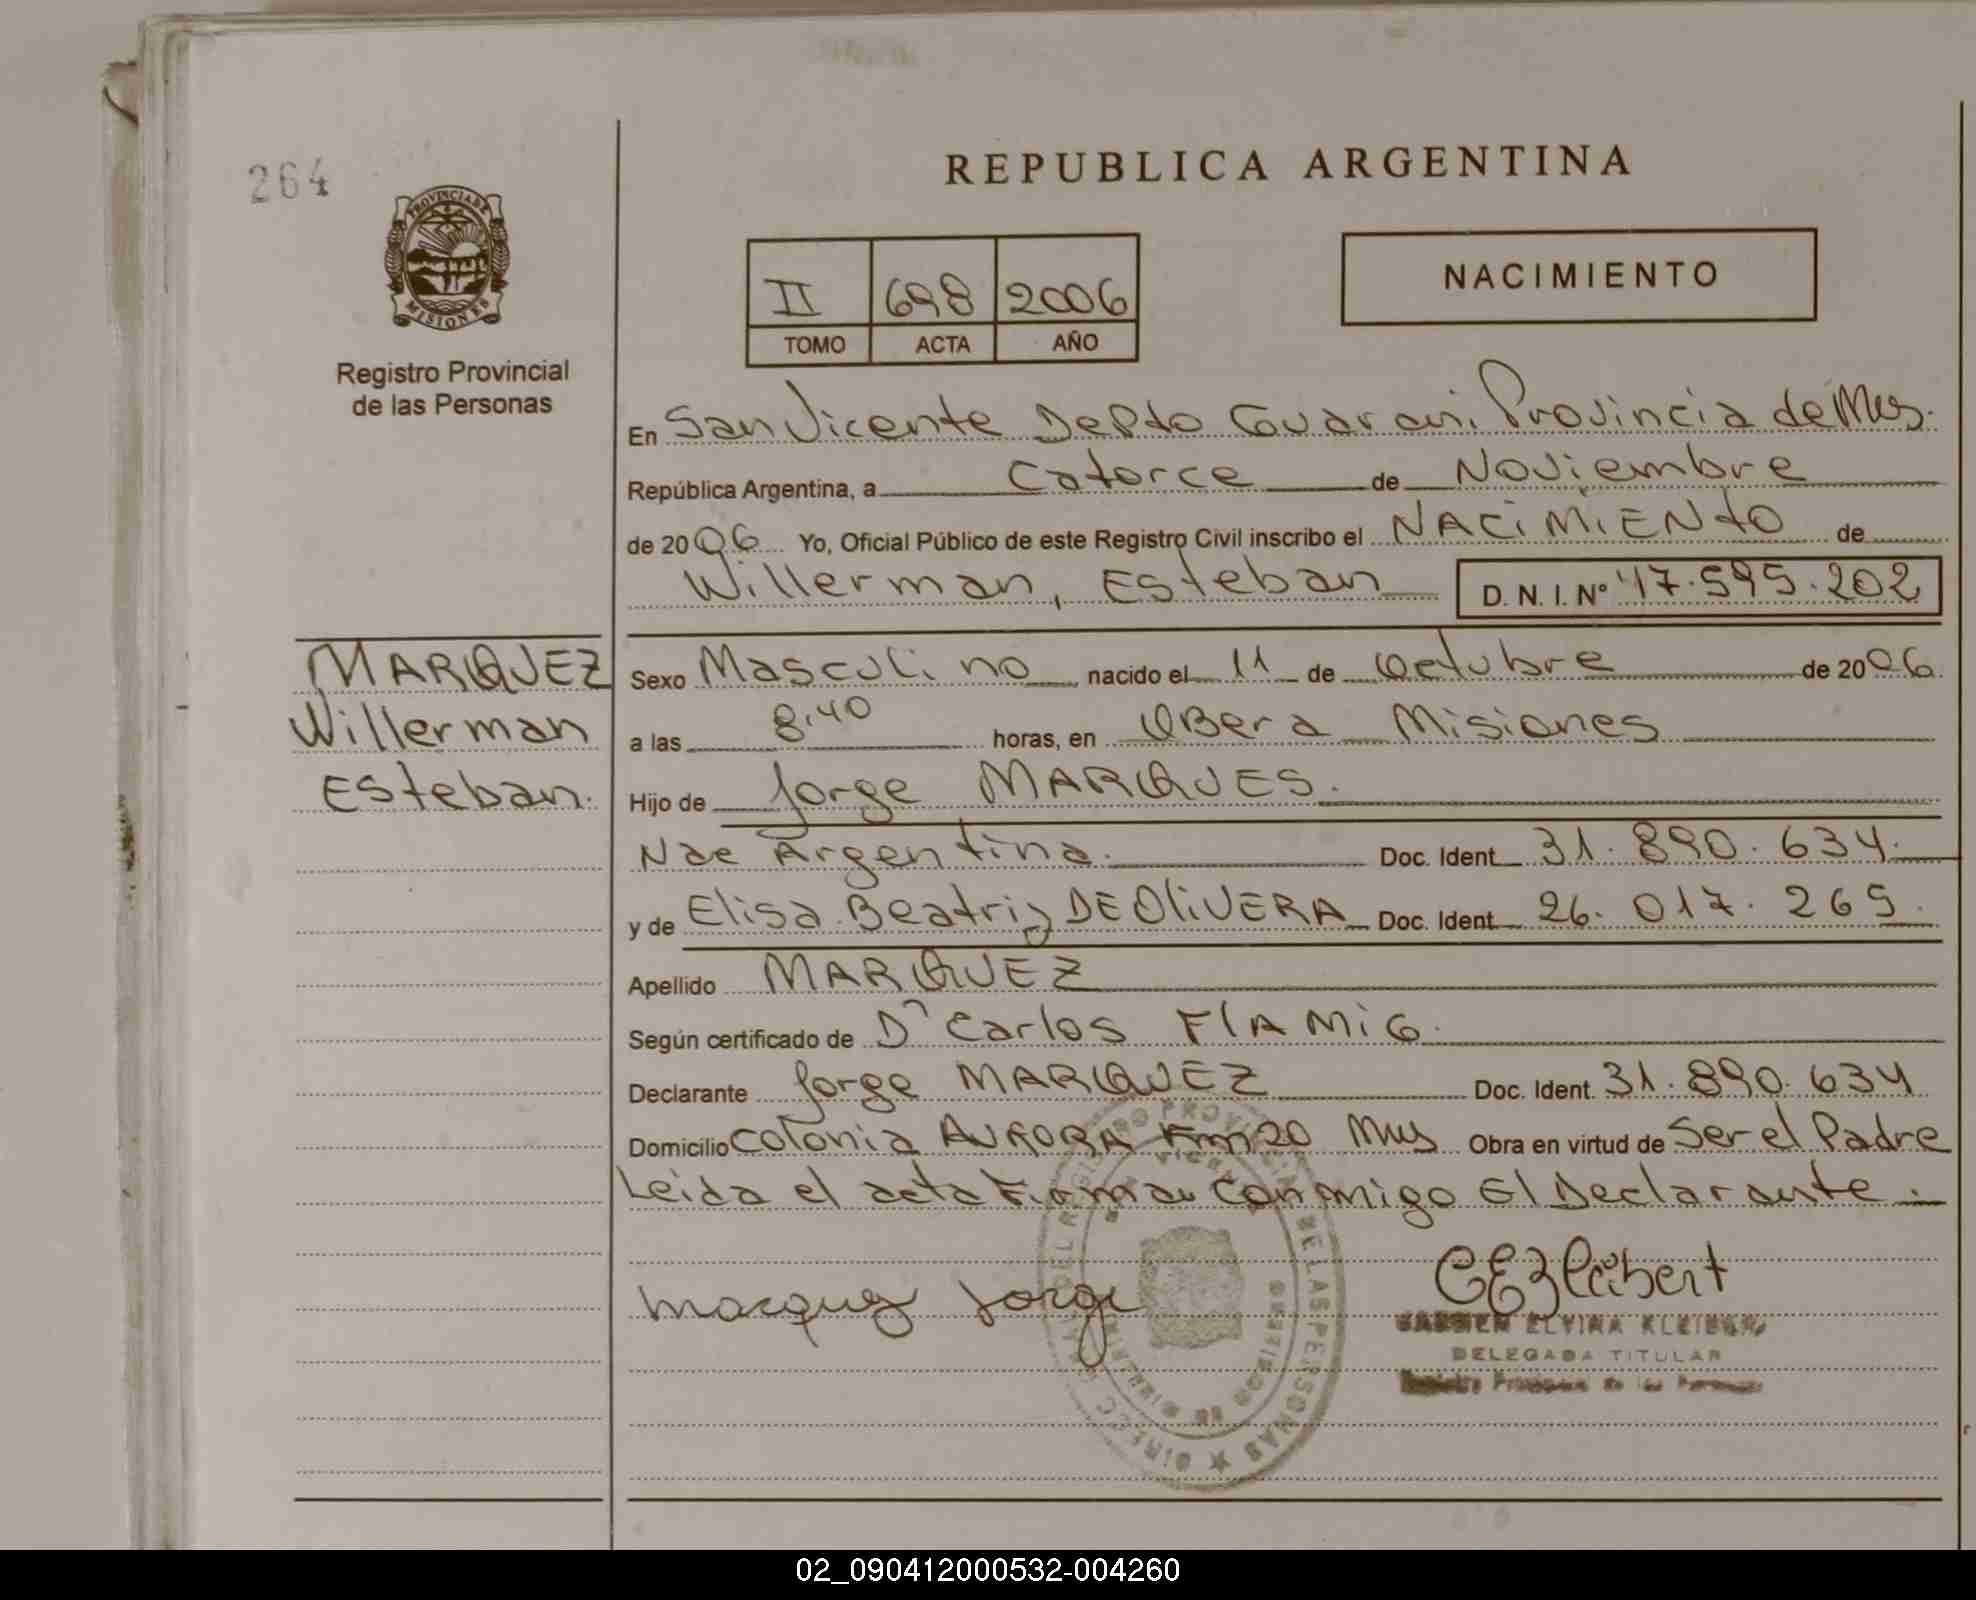 264
PROVINCIA DE
MISIONES
Registro Provincial
de las Personas
REPUBLICA ARGENTINA
II 698 2006
TOMO ACTA AÑO
NACIMIENTO
En San Vicente Depto Guarani Provincia de Mns.
República Argentina, a Catorce de Noviembre
de 2006 Yo, Oficial Público de este Registro Civil inscribo el NACIMIENTO de
Willerman, Esteban D. N. I. Nº 47.595.202
MARQUEZ
Willerman
Esteban.
Sexo Masculino nacido el 11 de Octubre de 2006.
a las 8.40 horas, en OBera Misiones
Hijo de Jorge MARQUES.
Nac Argentina. Doc. Ident 31.890.634.
y de Elisa Beatriz DE OliVERA Doc. Ident 26.017.265.
Apellido MARQUEZ
Según certificado de Dr Carlos FlAMiG.
Declarante Jorge MARQUEZ Doc. Ident. 31.890.634
Domicilio Colonia AURORA Km 20 Mns Obra en virtud de Ser el Padre
Leida el acta Firma Conmigo El Declarante.
Marquez Jorge
CEKleibert
CARMEN ELVIRA
DELEGADA TITULAR
Registro Provincial de las Personas
DEL REGISTRO PROVINCIAL DE LAS PERSONAS
02_090412000532-004260